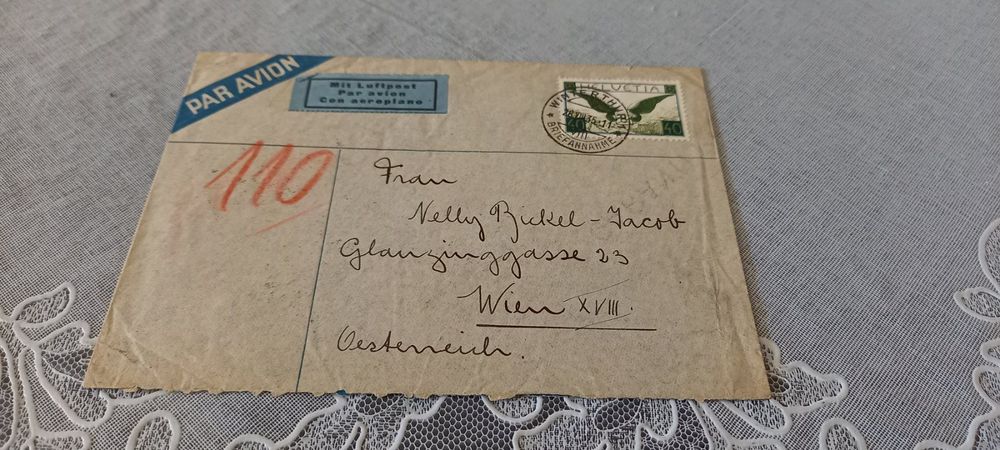 PAR AVION
Mit Luftpost
Par avion
Con aeroplano
HELVETIA
40 40
WINTERTHUR 1
BRIEFANNAHME
110
Frau
Nelly Bickel-Jacob
Glanzinggasse 23
Wien XVIII.
Oesterreich.